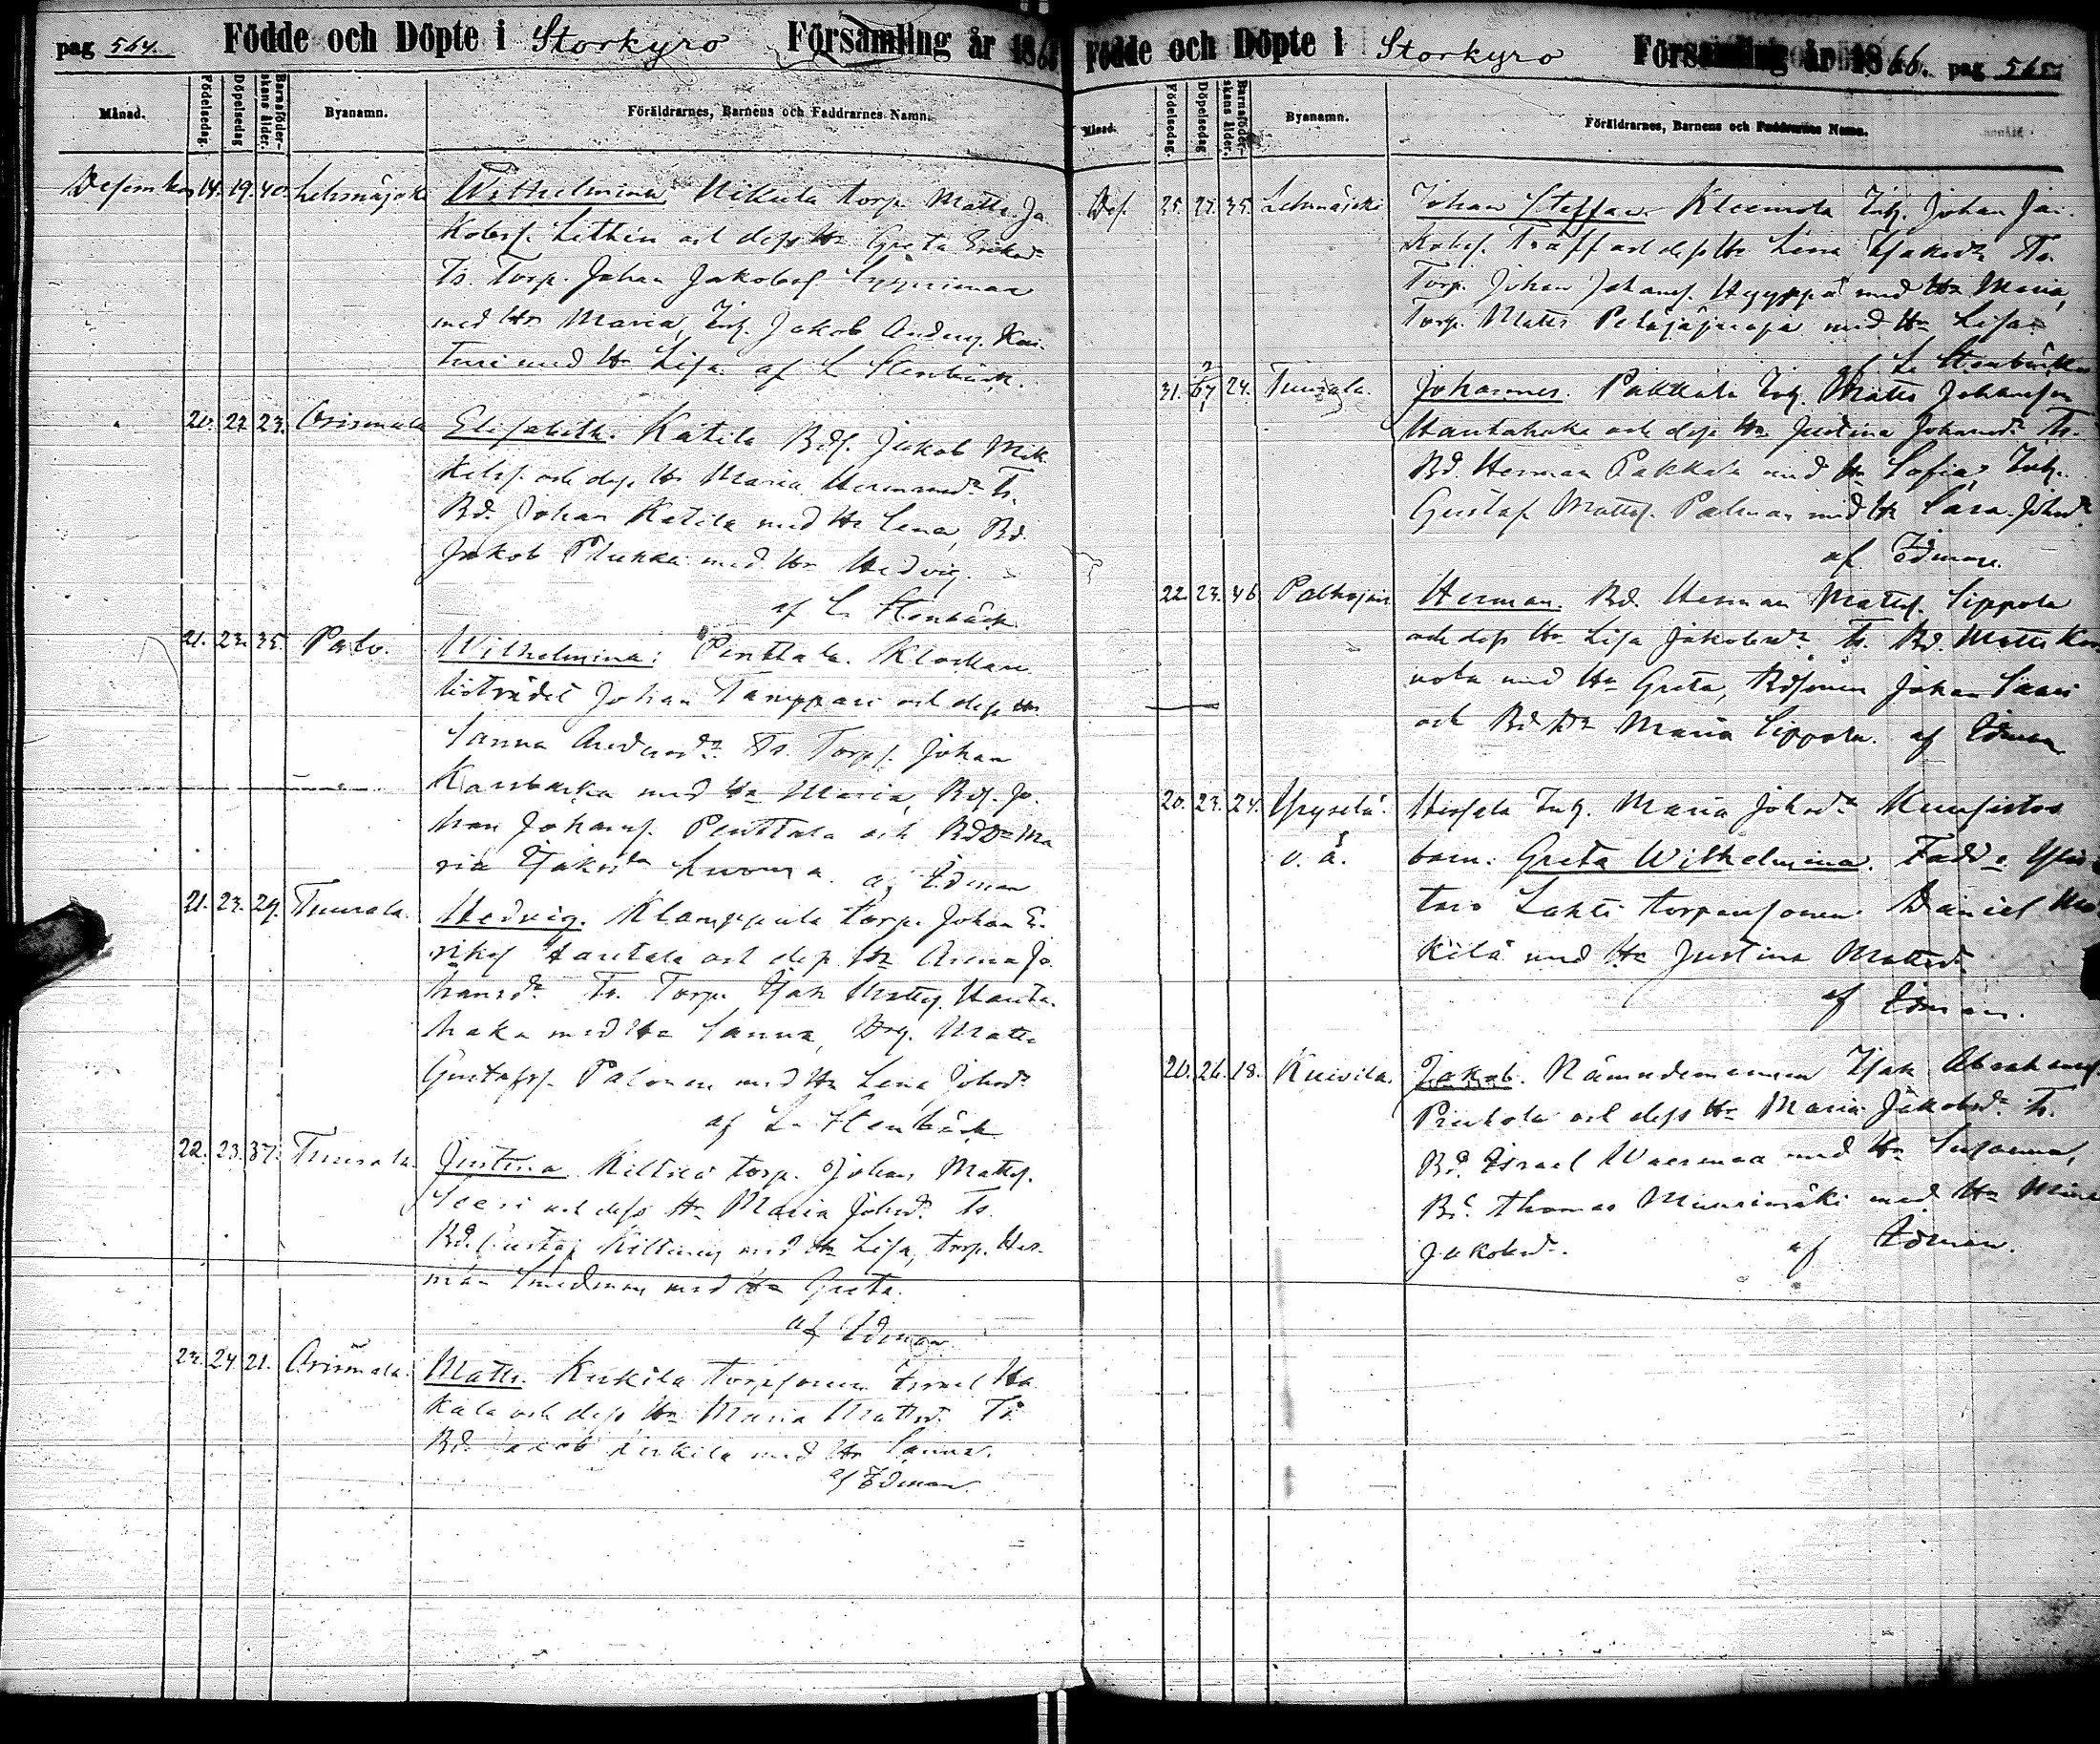 pag 564. Födde och Döpte i Storkyro Församling år 186
Månad. Födelsedag. Döpelsedag Barnaföderskans ålder. Byanamn. Föräldrarnes, Barnens och Faddrarnes Namn.
December 14. 19. 40. Lehmäjoki Wilhelmina Nikula torp. Matts Ja
kobss. Lithen och dess Hu Greta Eriksdr
Ts. Torp. Johan Jakobss
med Hu Maria, Inh. Jakob Anderss. Kai
turi med Hu Lisa af L Stenbäck.
20. 23. 23. Orismala Elisabeth. Katila Bds. Jakob Mik
kelss. och dess Hu Maria Hermansdr Ts.
Bd. Johan Katila med Hu Lena, Bd.
Jakob Plukka med Hu Hedvig.
af L. Stenbäck
21. 23. 35. Palo. Wilhelmina: Penttala. Klockare
biträdet Johan Tamppari och dess Hu
Sanna Andersdr. Ts. Torps. Johan
med Hu Maria, Bds. Jo
han Johanss. Penttala och BdDr Ma
ria Isaksdr Luoma. af Edman
21. 23. 29. Tuurala. Hedvig. Klamppula torp. Johan E
rikss Hautala och dess Hu Anna Jo
hansdr. Ts. Torp. Isak Mattss. Hauta
haka med Hu Sanna, Matts
Gustafss. Palonen med Hu Lena Johsdr
af L. Stenbäck
22. 23. 37. Tuurala. Justina Kiltilä torp. Johan Mattss.
och dess Hu Maria Johsdr. Ts.
Bd. Gustaf Kiltinen med Hu Lisa, torp. Her
man Smedman med Hu Greta.
af Edman
23. 24. 21. Orismala. Matts. Kukila torpsonen Israel Ha
kala och dess Hu Maria Mattsd. Ts.
Bd. Jakob Kukila med Hu Sanna.
af Edman
Födde och Döpte i Storkyro Församling år 1866. pag 565.
Månad. Födelsedag. Döpelsedag Barnaföderskans ålder. Byanamn. Föräldrarnes, Barnens och Faddrarnes Namn.
Dec. 25. 27. 35. Lehmäjoki Johan Staffan. Kleemola Inh. Johan Ja
kobss. Träff och dess Hu Lena Isaksdr Ts.
Torp. Johan Johanss. Hyyppä med Hu Maria,
Torp. Matts Petäjäjärvi med Hu Lisa
af L. Stenbäck
31. 2/1 67 24. Tuurala. Johannes. Pakkala Inh. Matts Johansson
Hautahaka och dess Hu Justina Johansdr Ts.
Bd. Herman Pakkala med Hu Sofia, Inh.
Gustaf Mattss. Palman med Hu Sara Johsdr
af Edman.
22. 23. 46 Palhojais Herman. Bd. Herman Mattss. Sippola
och dess Hu Lisa Jakobsdr Ts. Bd. Matts
nola med Hu Greta, Bdsonen Johan Saari
och BdDr Maria Sippola. af Edman
20. 23. 24. Yryselä Inh. Maria Johsdr Kuusistos
o. ä. barn: Greta Wilhelmina. Fadd.
Lahti torparsonen Daniel
kilä med Hu Justina Mattsdr
af Edman.
26. 26. 18. Kuivila. Jakob. Nämndemannen Isak Abrahams.
och dess Hu Maria Jakobsdr. Ts.
Bd. Israel Waermaa med Hu Susanna,
Bd. Thomas Muurimäki med Hu
Jakobsdr. af Edman.